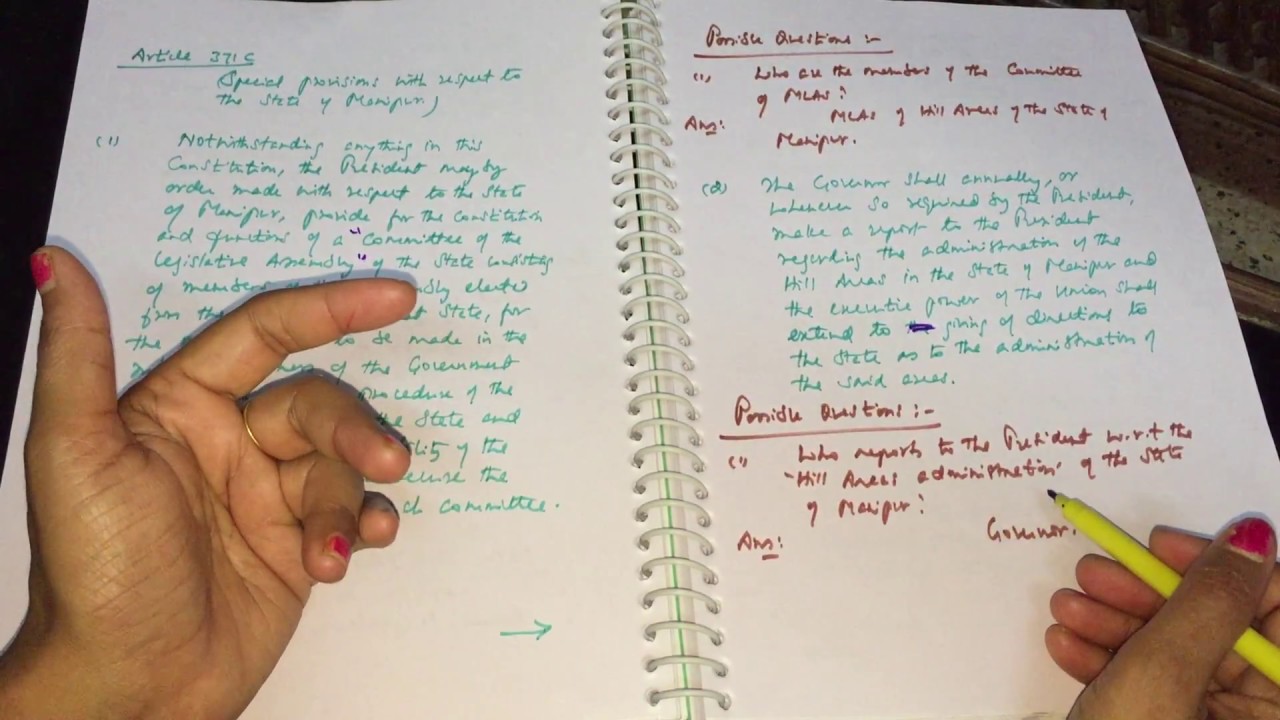 Article 371C
(Special provisions with respect to
the State of Manipur)
(1) Notwithstanding anything in this
Constitution, the President may by
order made with respect to the State
of Manipur, provide for the constitution
and functions of a "Committee of the
Legislative Assembly" of the State consisting
of members elected
from the State, for
the to be made in the
of the Government
procedure of the
the State and
of the
the
committee.
Possible Questions :-
(1) Who are the members of the Committee
of MLAs?
Ans: MLAs of Hill Areas of the State of
Manipur.
(2) The Governor shall annually, or
whenever so required by the President,
make a report to the President
regarding the administration of the
Hill Areas in the State of Manipur and
the executive power of the Union shall
extend to giving of directions to
the State as to the administration of
the said areas.
Possible Questions :-
(1) Who reports to the President w.r.t the
"Hill Areas administration" of the State
of Manipur?
Ans: Governor.